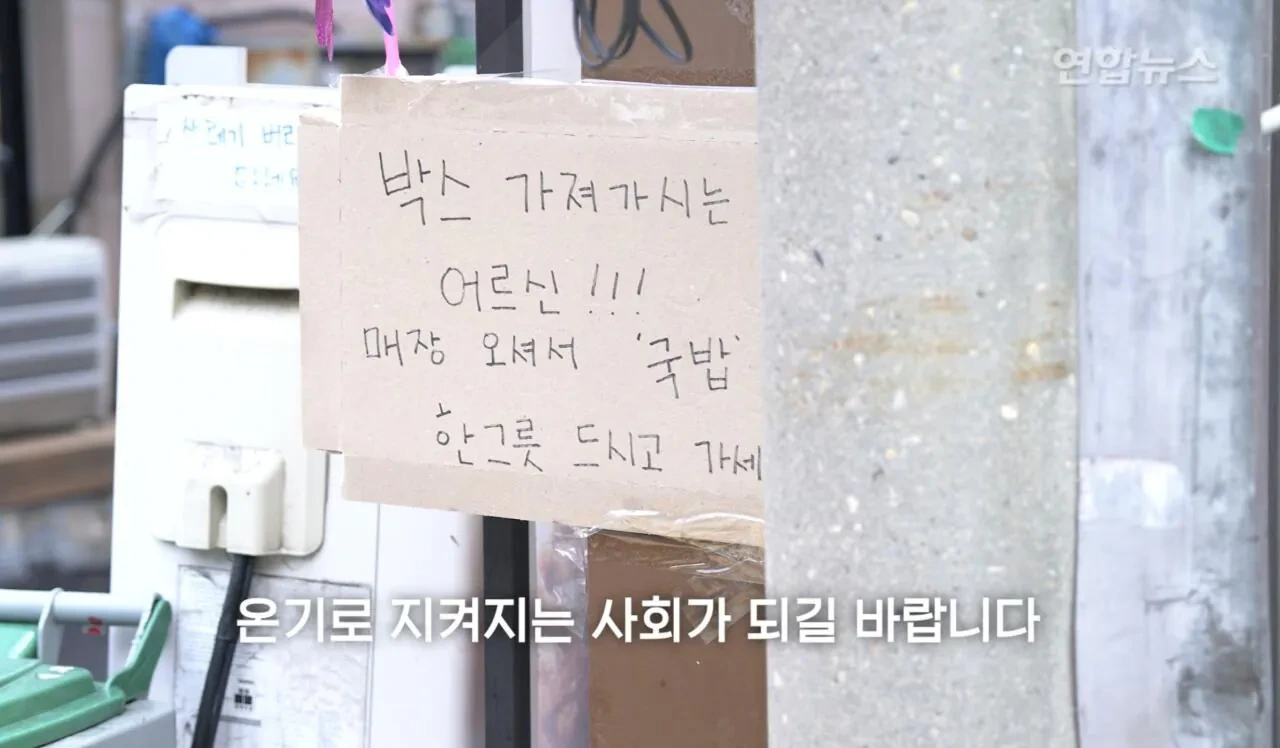 연합뉴스
박스 가져가시는
어르신!!!
매장 오셔서 '국밥'
한그릇 드시고 가세
온기로 지켜지는 사회가 되길 바랍니다